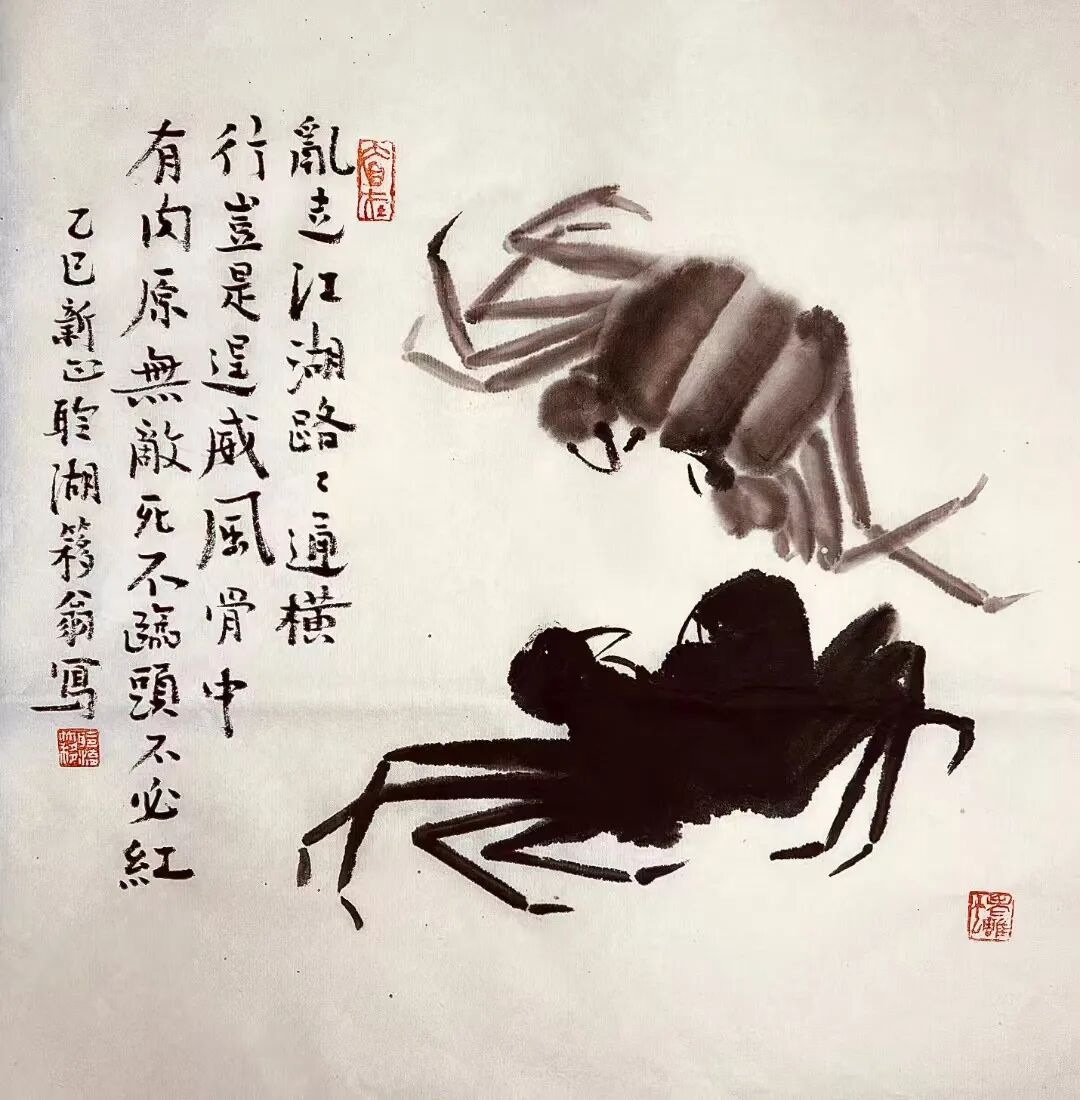 亂赱江湖路〻通橫
行豈是逞威風骨中
有肉原無敵死不臨頭不必紅
乙巳新正聆湖簃翁寫